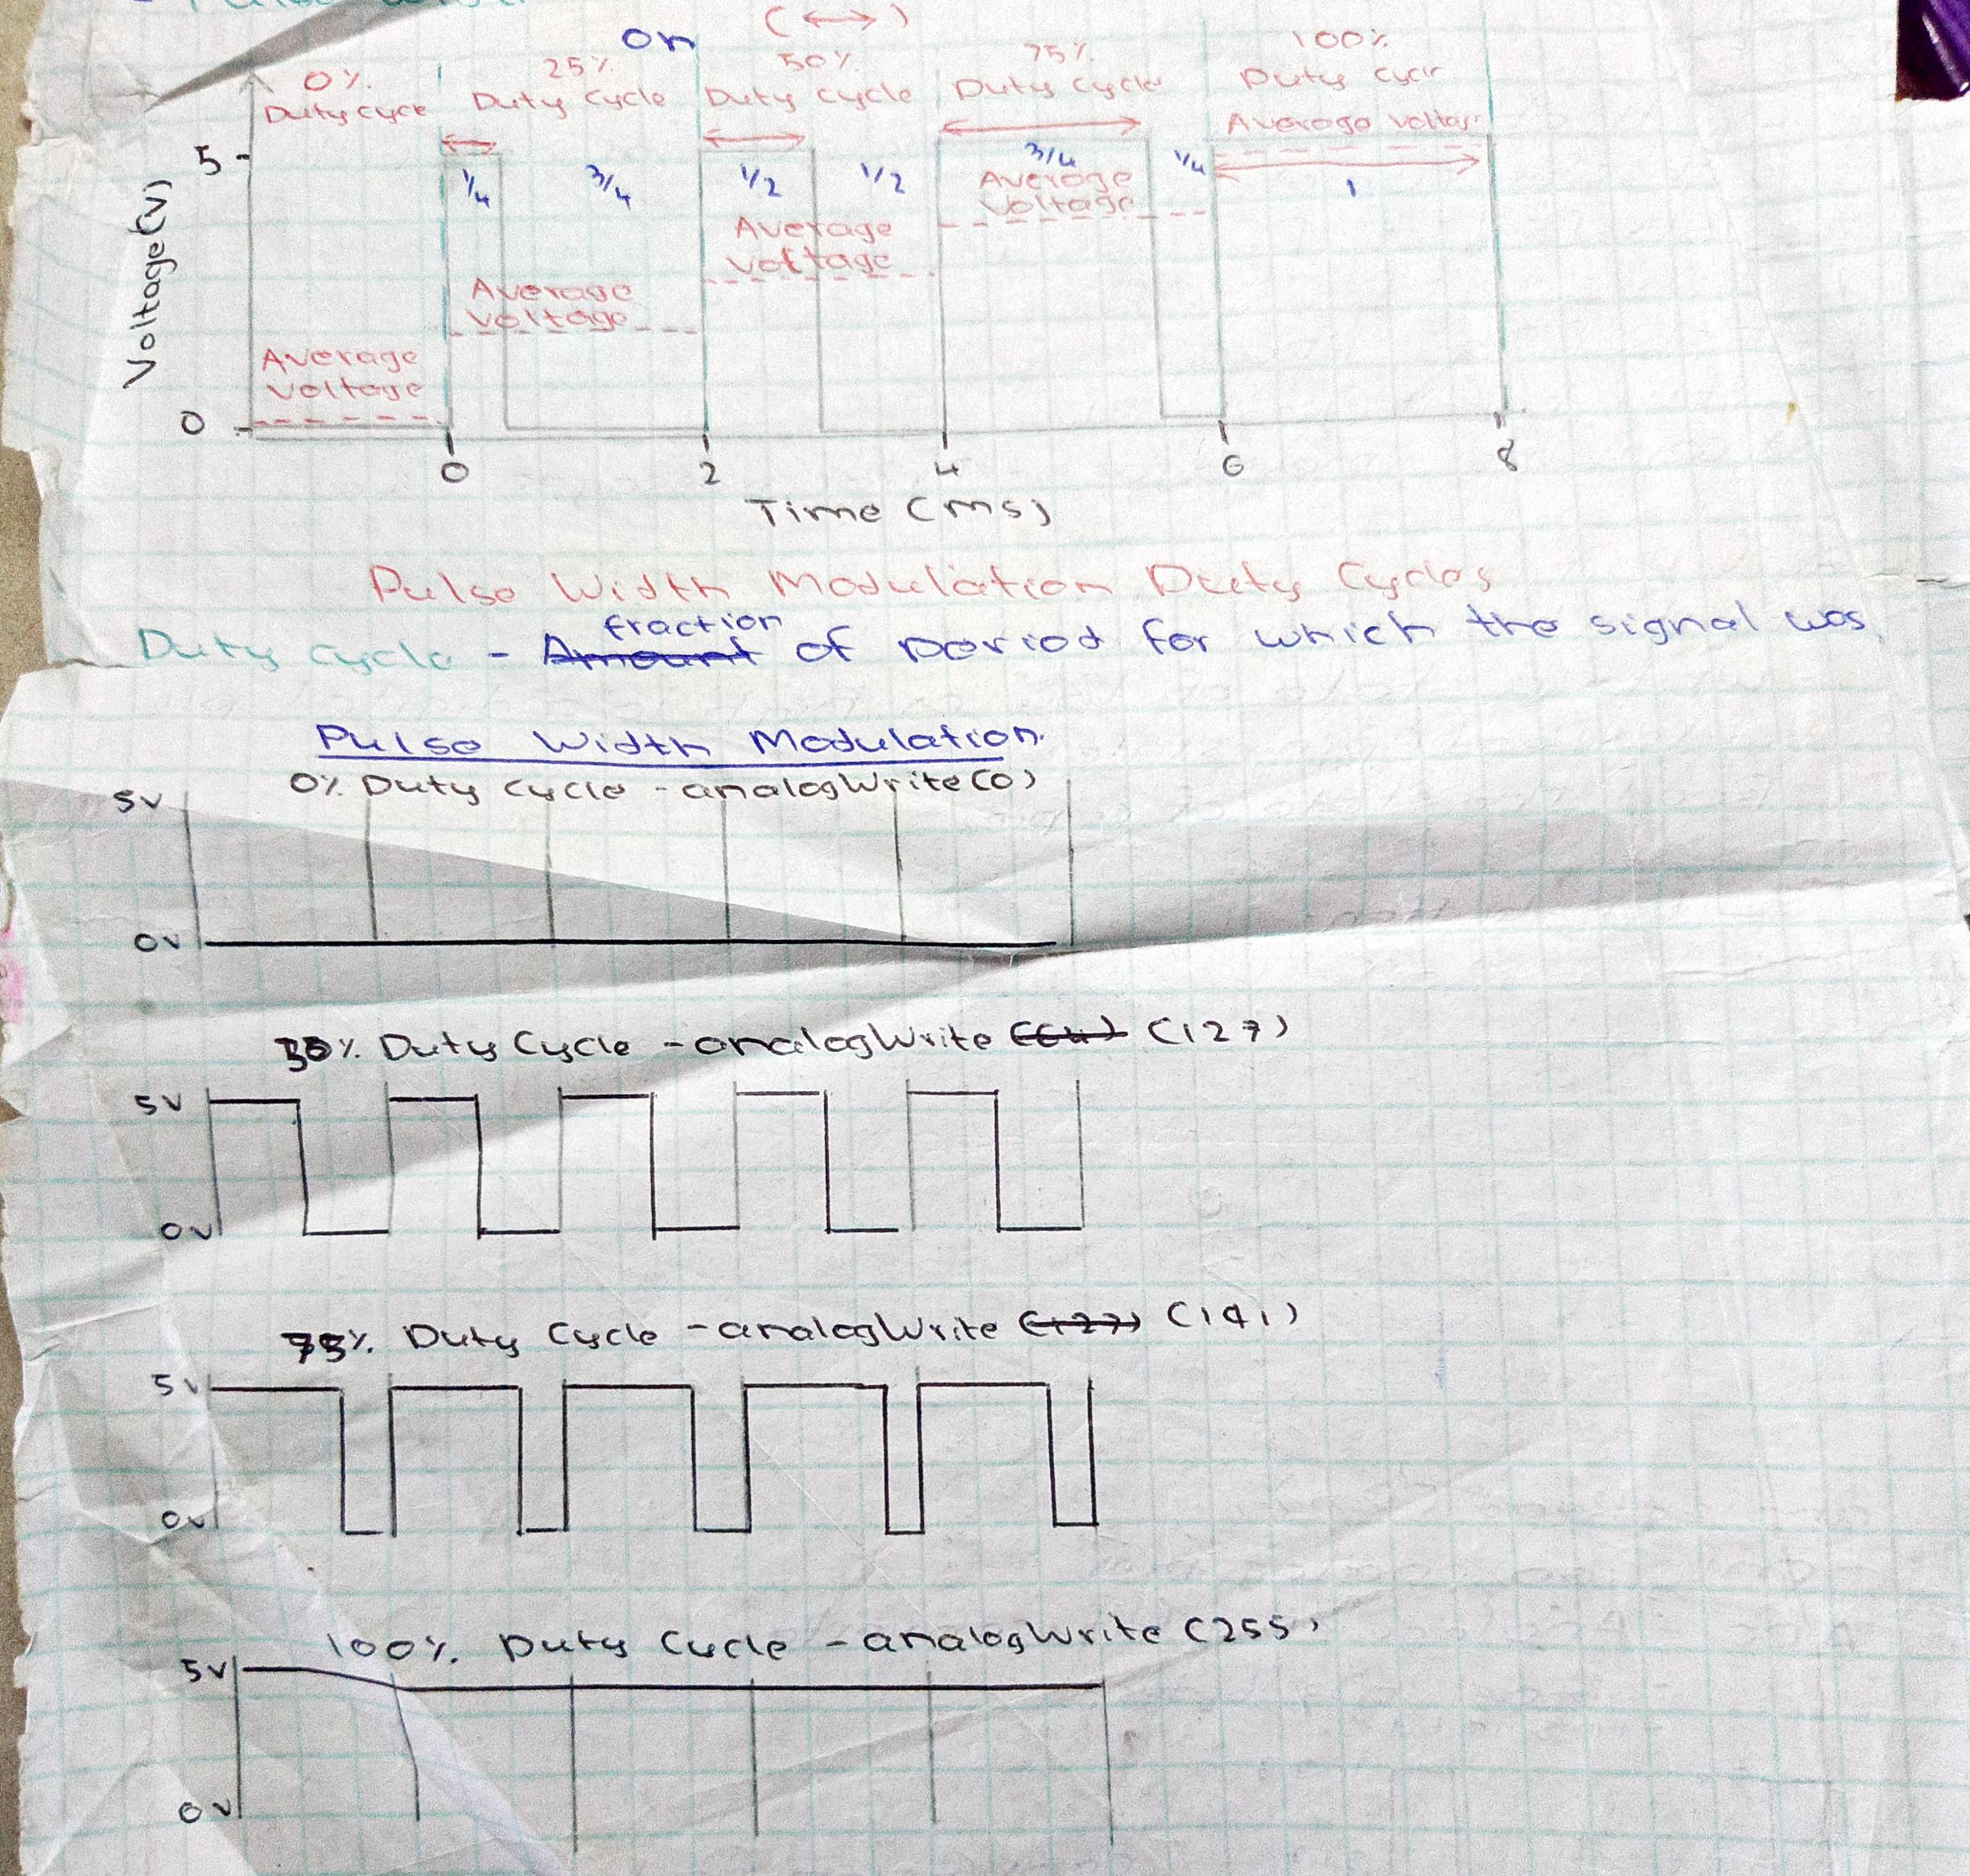 on (↔)
0% 25% 50% 75% 100%
Duty cycle Duty cycle Duty cycle Duty cycle Duty cycle
Average voltage
5
1/4 3/4 1/2 1/2 3/4 1/4 1
Average
voltage
Average
voltage
Average
voltage
Average
voltage
Voltage (V)
0
0 2 4 6 8
Time (ms)
Pulse Width Modulation Duty Cycles
fraction
Duty cycle - Amount of period for which the signal was
Pulse Width Modulation
0% Duty Cycle - analogWrite (0)
5V
0V
% Duty Cycle - analogWrite (64) (127)
5V
0V
75% Duty Cycle - analogWrite (127) (191)
5V
0V
100% Duty Cycle - analogWrite (255)
5V
0V